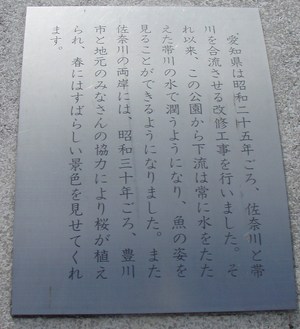 愛知県は昭和二十五年ごろ、佐奈川と帯
川を合流させる改修工事を行いました。そ
れ以来、この公園から下流は常に水をたた
えた帯川の水で潤うようになり、魚の姿を
見ることができるようになりました。また
佐奈川の両岸には、昭和三十年ごろ、豊川
市と地元のみなさんの協力により桜が植え
られ、春にはすばらしい景色を見せてくれ
ます。